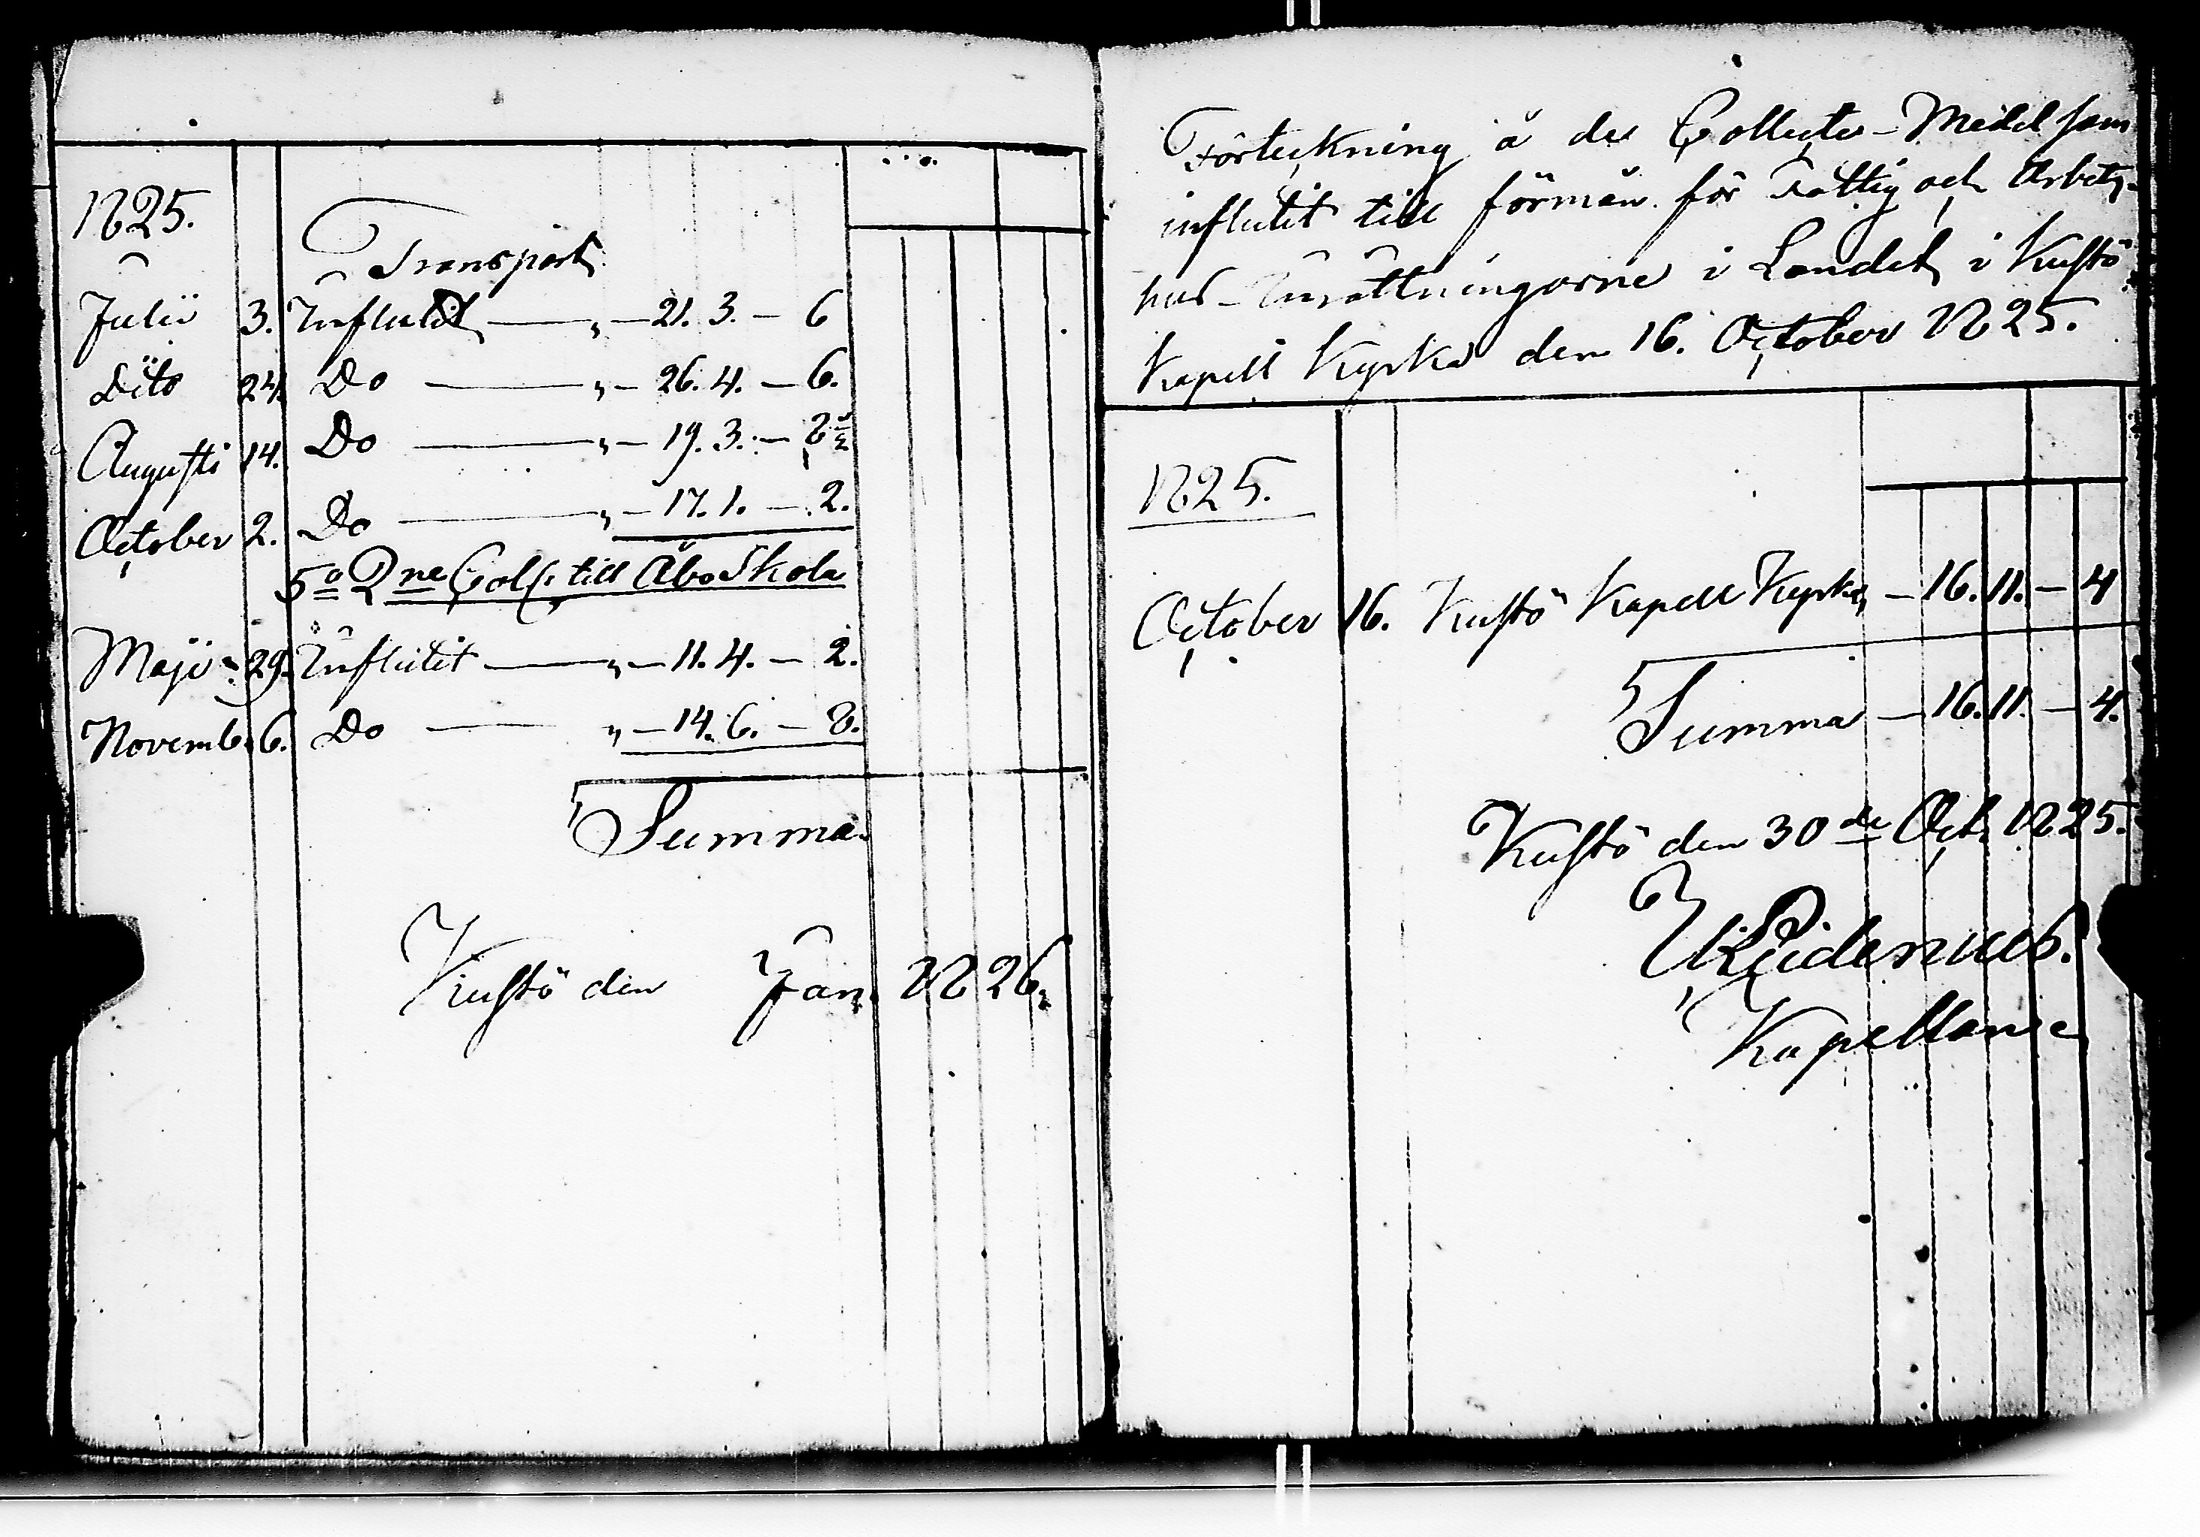 1825.
Transport
Julii 3. Influtit — „ — 21. 3. — 6
Dito 24. Do — „ — 26. 4. — 6.
Augusti 14. Do — „ — 19. 3. — 8
October 2. Do — „ — 17. 1. — 2.
5º 2ne Coll: till Åbo Skola
Maji 29. Influtit — „ — 11. 4. — 2.
Novemb. 6. Do — „ — 14. 6. — 8.
Summa
Kustö den Jan. 1826.
Förteckning å de Collecte-Medel som
influtit till förmån för Fattig och Arbets-
hus-Inrättningarne i Landet, i Kustö
Kapell Kyrka den 16. October 1825.
1825.
October 16. Kustö Kapell Kyrka — 16. 11. — 4
Summa — 16. 11. — 4.
Kustö den 30de Oct. 1825.
Kapellan